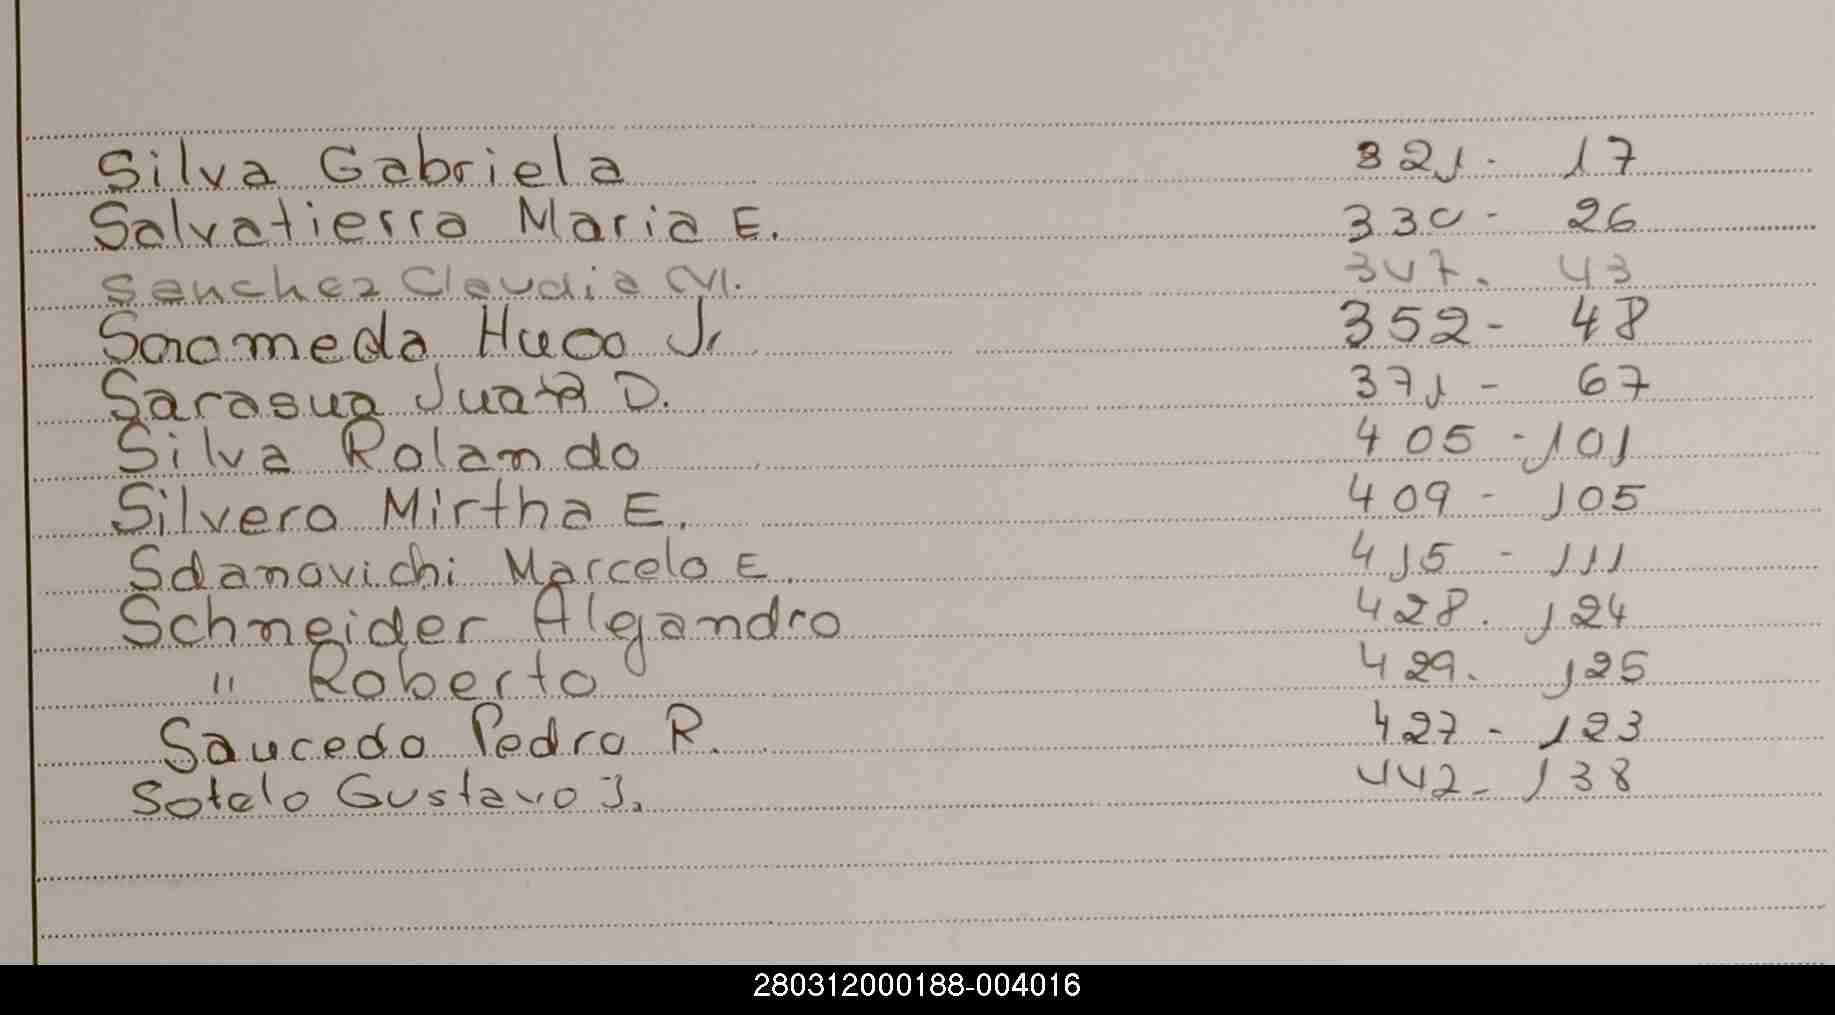 Silva Gabriela 321. 17
Salvatierra Maria E. 330- 26
Sanchez Claudia M. 347. 43
Hugo J. 352- 48
Sarasua Juan D. 371- 67
Silva Rolando 405-101
Silvero Mirtha E. 409- 105
Sdanovichi Marcelo E. 415- 111
Schneider Alejandro 428. 124
" Roberto 429. 125
Saucedo Pedro R. 427- 123
Sotelo Gustavo J. 442- 138
280312000188-004016